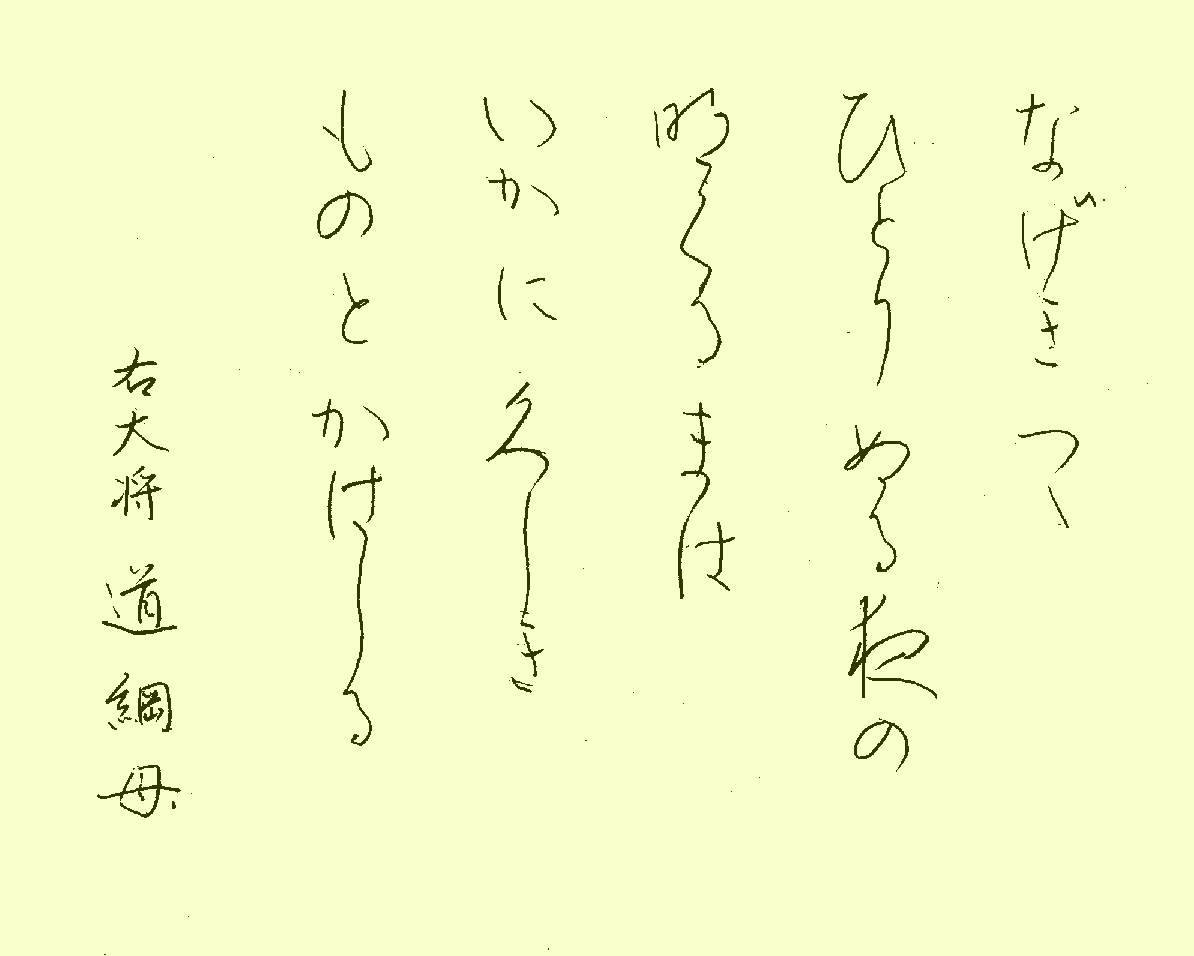 なげきつゝ
ひとりぬる夜の
明くるまは
いかに久しき
ものとかはしる
右大将道綱母